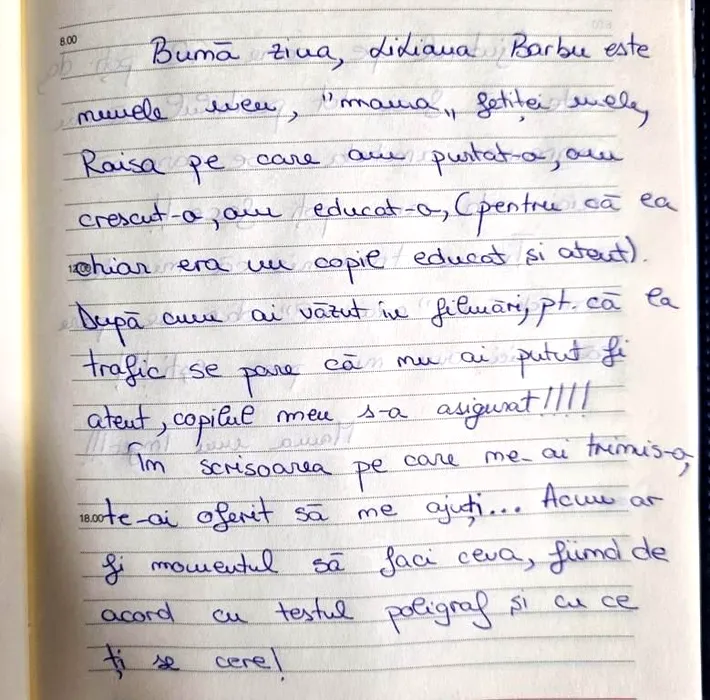 8.00
Bună ziua, Liliana Barbu este
numele meu, "mama„ fetiței mele,
Raisa pe care am purtat-o, am
crescut-o, am educat-o, (pentru că ea
chiar era un copil educat și atent).
După cum ai văzut în filmări, pt. că la
trafic se pare că nu ai putut fi
atent, copilul meu s-a asigurat!!!!
În scrisoarea pe care ne-ai trimis-o,
18.00 te-ai oferit să me ajuți... Acum ar
fi momentul să faci ceva, fiind de
acord cu testul poligraf și cu ce
ți se cere!